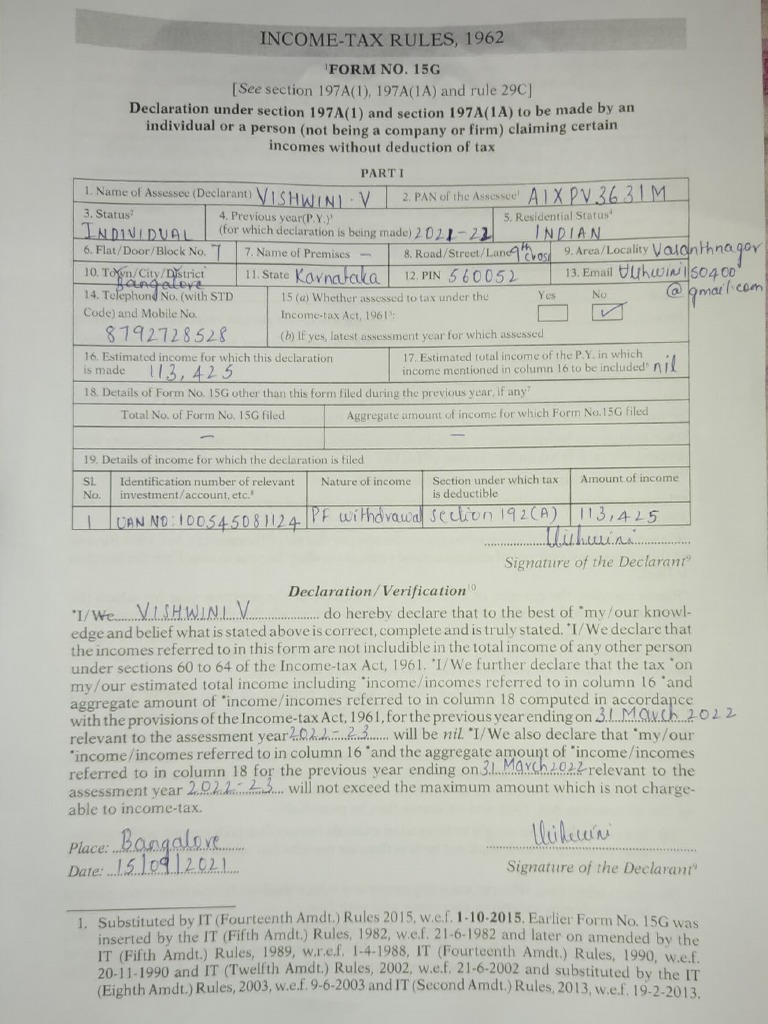 INCOME-TAX RULES, 1962
¹FORM NO. 15G
[See section 197A(1), 197A(1A) and rule 29C]
Declaration under section 197A(1) and section 197A(1A) to be made by an
individual or a person (not being a company or firm) claiming certain
incomes without deduction of tax
PART I
1. Name of Assessee (Declarant) VISHWINI V 2. PAN of the Assessee¹ AIXPV3631M
3. Status² INDIVIDUAL 4. Previous year(P.Y.)³ (for which declaration is being made) 2021-22 5. Residential Status⁴ INDIAN
6. Flat/Door/Block No. 7 7. Name of Premises — 8. Road/Street/Lane 9th cross 9. Area/Locality Vasanthnagar
10. Town/City/District Bangalore 11. State Karnataka 12. PIN 560052 13. Email Vishwini50400@gmail.com
14. Telephone No. (with STD Code) and Mobile No. 8792728528 15 (a) Whether assessed to tax under the Income-tax Act, 1961⁵: Yes No ✓
(b) If yes, latest assessment year for which assessed
16. Estimated income for which this declaration is made 113,425 17. Estimated total income of the P.Y. in which income mentioned in column 16 to be included⁶ nil
18. Details of Form No. 15G other than this form filed during the previous year, if any⁷
Total No. of Form No. 15G filed Aggregate amount of income for which Form No.15G filed
— —
19. Details of income for which the declaration is filed
Sl. No. Identification number of relevant investment/account, etc.⁸ Nature of income Section under which tax is deductible Amount of income
1 UAN NO: 100545081124 PF withdrawal section 192(A) 113,425
Vishwini
Signature of the Declarant⁹
Declaration/Verification¹⁰
*I/We VISHWINI V do hereby declare that to the best of *my/our knowl-
edge and belief what is stated above is correct, complete and is truly stated. *I/We declare that
the incomes referred to in this form are not includible in the total income of any other person
under sections 60 to 64 of the Income-tax Act, 1961. *I/We further declare that the tax *on
my/our estimated total income including *income/incomes referred to in column 16 *and
aggregate amount of *income/incomes referred to in column 18 computed in accordance
with the provisions of the Income-tax Act, 1961, for the previous year ending on 31 March 2022
relevant to the assessment year 2022-23 will be nil. *I/We also declare that *my/our
*income/incomes referred to in column 16 *and the aggregate amount of *income/incomes
referred to in column 18 for the previous year ending on 31 March 2022 relevant to the
assessment year 2022-23 will not exceed the maximum amount which is not charge-
able to income-tax.
Place: Bangalore
Date: 15/09/2021
Vishwini
Signature of the Declarant⁹
1. Substituted by IT (Fourteenth Amdt.) Rules 2015, w.e.f. 1-10-2015. Earlier Form No. 15G was
inserted by the IT (Fifth Amdt.) Rules, 1982, w.e.f. 21-6-1982 and later on amended by the
IT (Fifth Amdt.) Rules, 1989, w.r.e.f. 1-4-1988, IT (Fourteenth Amdt.) Rules, 1990, w.e.f.
20-11-1990 and IT (Twelfth Amdt.) Rules, 2002, w.e.f. 21-6-2002 and substituted by the IT
(Eighth Amdt.) Rules, 2003, w.e.f. 9-6-2003 and IT (Second Amdt.) Rules, 2013, w.e.f. 19-2-2013.